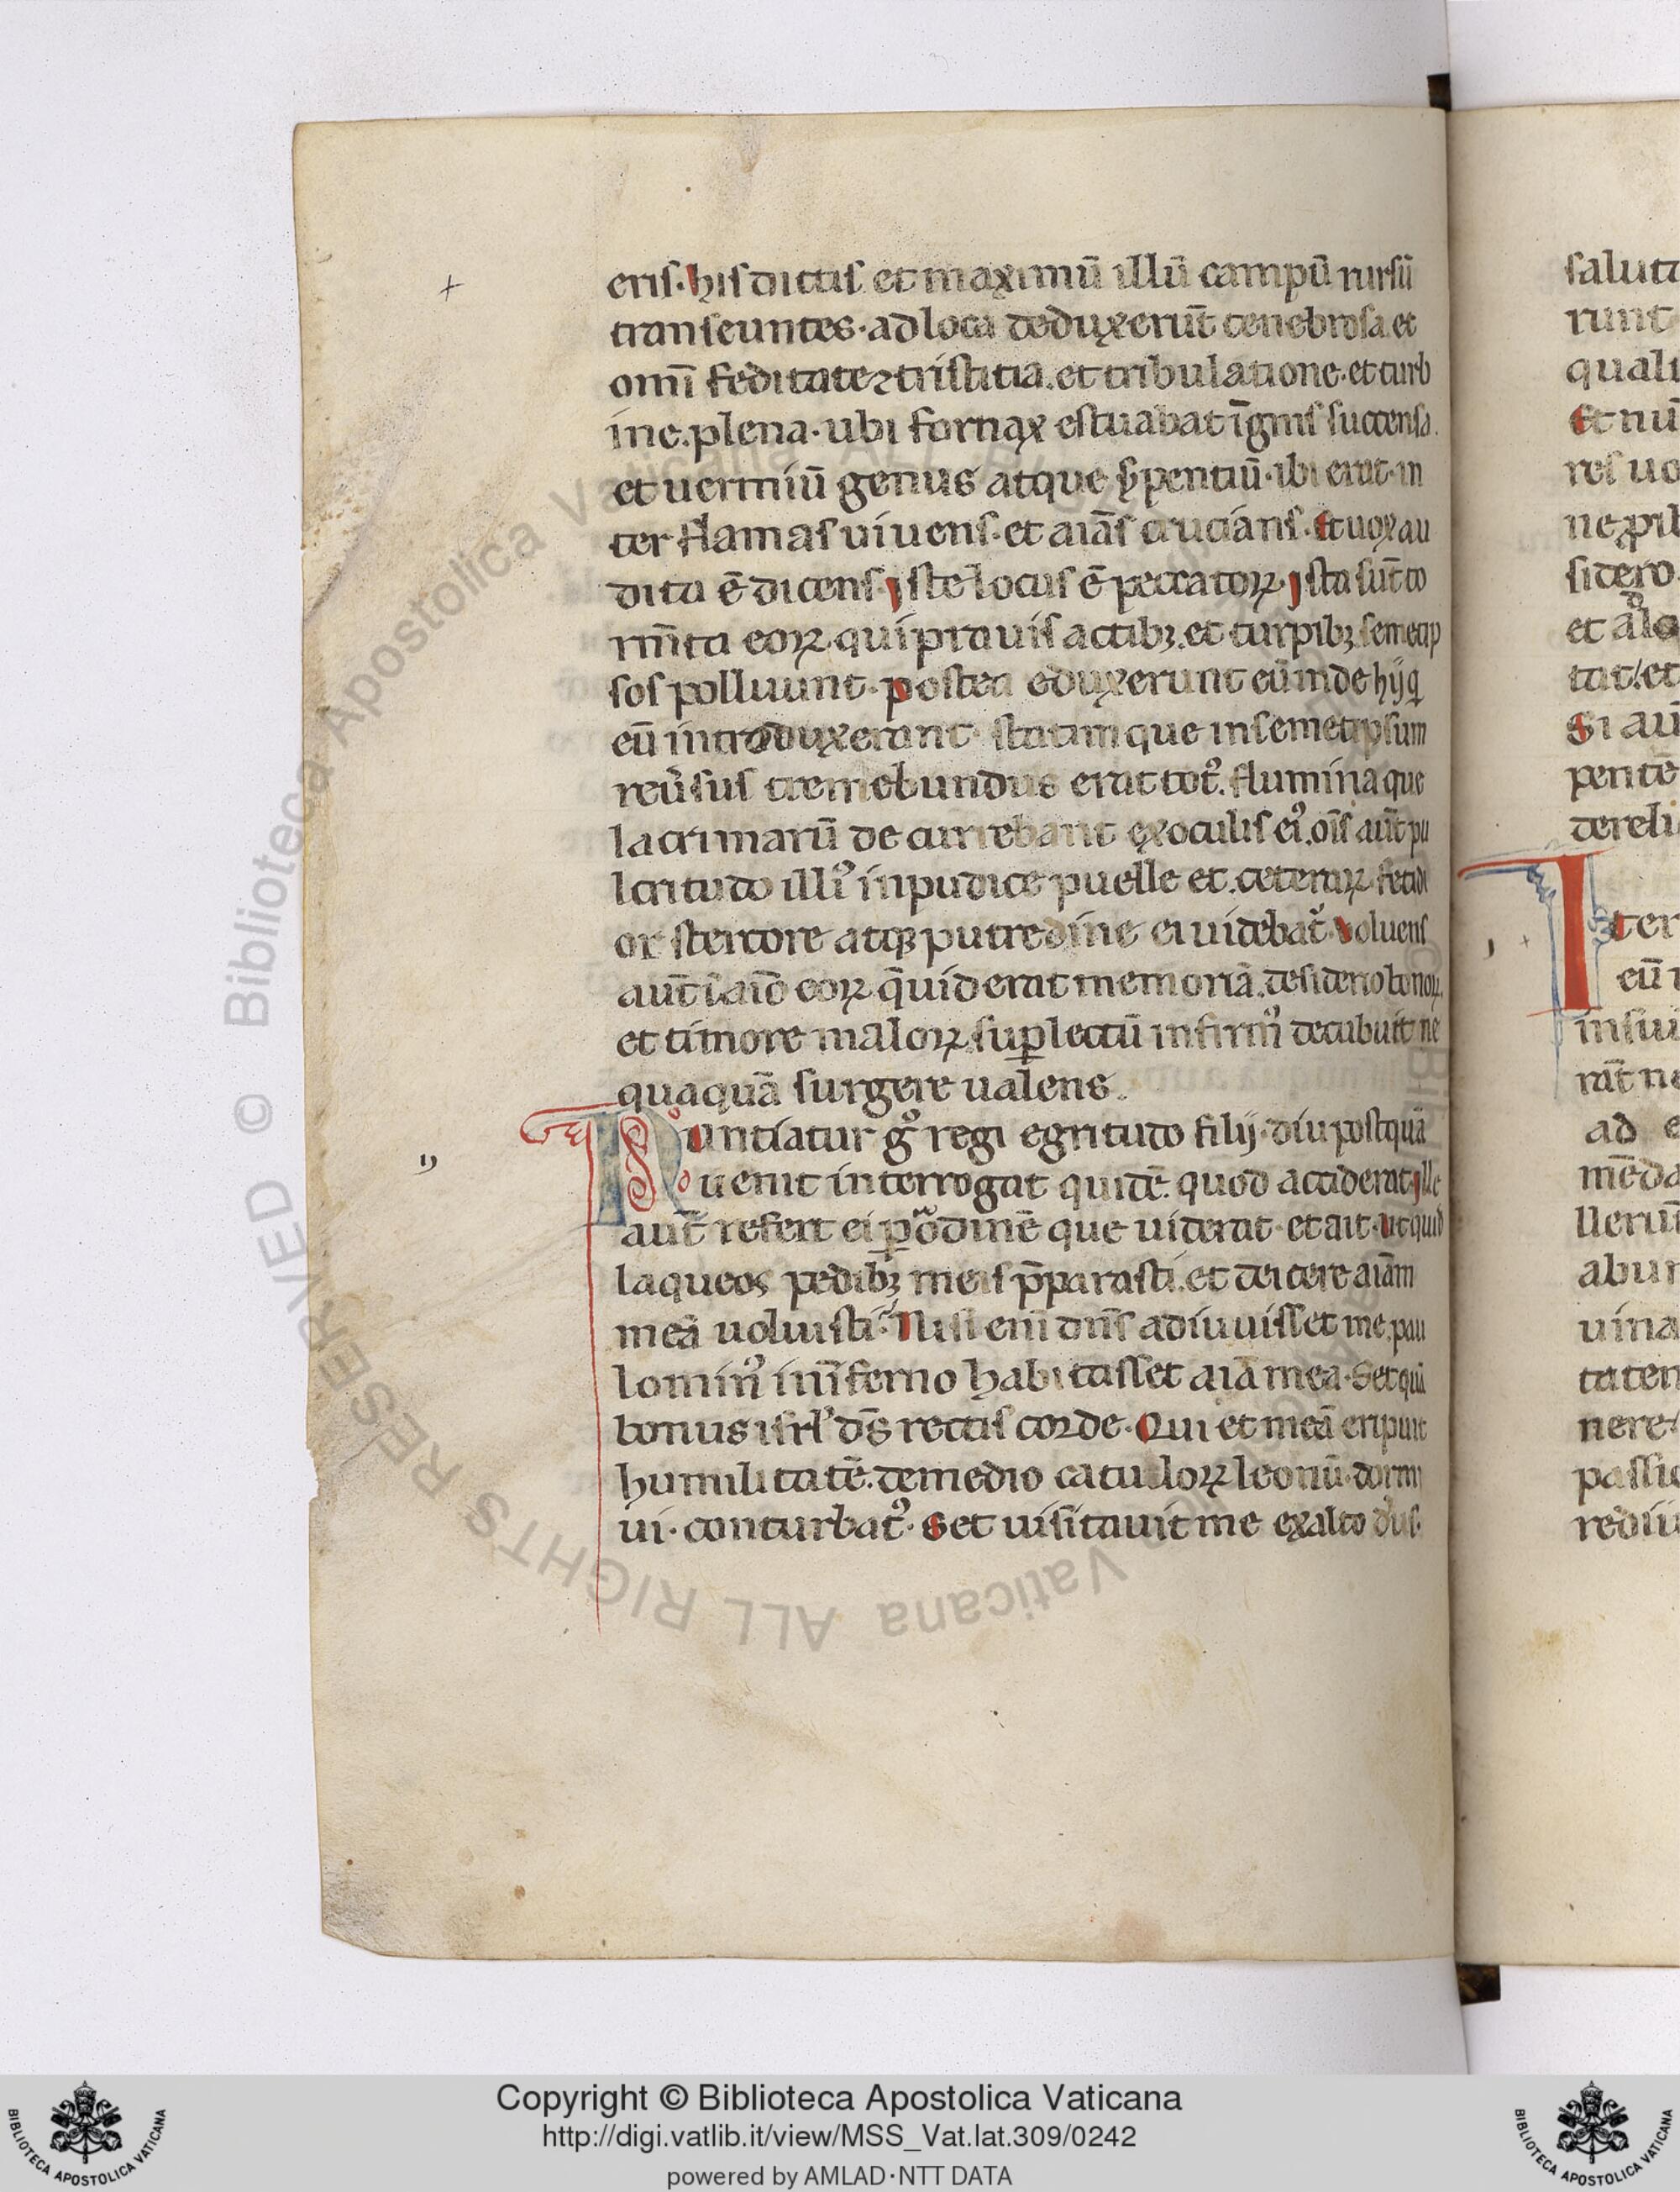 eris. his dictis et maximū illū campū rursū
transeuntes. ad loca deduxerūt tenebrosa. et
omī feditate ⁊ tristitia. et tribulatione. et turb
ine. plena. ubi fornax estuabat īgnis succensa.
et uermiū genus atque s̄pentiū. ibi erat. in
ter flamas uiuens. et aiās crucians. Et uox au
dita ē dicens. iste locus ē peccatoꝝ. ista sūt to
rm̄ta eoꝝ. qui prauis actibꝫ. et turpibꝫ semetip
sos polluunt. postea eduxerunt eū inde hijq
eū introduxerant. statimque in semetipsum
reūsus tremebundus erat totꝰ. fluminaque
lacrimarū decurrebant exoculis eiꝰ. oīs aūt pu
lcritudo illiꝰ inpudice puelle et. ceteraꝝ. fetidi
or stercore atqꝫ putredine ei uidebat᷑. Voluens
aūt ī aīo eoꝝ q̄ uiderat memoriā. desiderio bonoꝝ.
et timore maloꝝ. suꝑ lectū infirmꝰ decubuit ne
quaquā surgere ualens.
Nuntiatur gͦ regi egritudo filij. diu postquā
uenit interrogat quidē. quod acciderat. ille
aūt refert ei ꝑ oͣdinē que uiderat. et ait. ut quid
laqueos pedibꝫ meis p̄parasti. et deicere aiām
meā uoluisti. Nisi eni dn̄s adiuuisset me. pau
lominꝰ in īferno habitasset aiā mea. Set quā
bonus isrl' dš rectis corde. Qui et meā eripuit
humilitatē. de medio catuloꝝ leonū. dormi
ui. conturbatꝰ. Set uisitauit me exalto d̄us.
salut
runt
quali
Et nū
res uo
ne ꝓpi
sidero.
et alo
tat. et
Si aū
pente
dereli
I
ter
eū
in sui
rāt ne
ad e
mēda
llerūt
abun
uina
taten
nere
passio
rediit
Copyright © Biblioteca Apostolica Vaticana
http://digi.vatlib.it/view/MSS_Vat.lat.309/0242
powered by AMLAD·NTT DATA
BIBLIOTECA APOSTOLICA VATICANA
BIBLIOTECA APOSTOLICA VATICANA
© Biblioteca Apostolica Vaticana ALL RIGHTS RESERVED